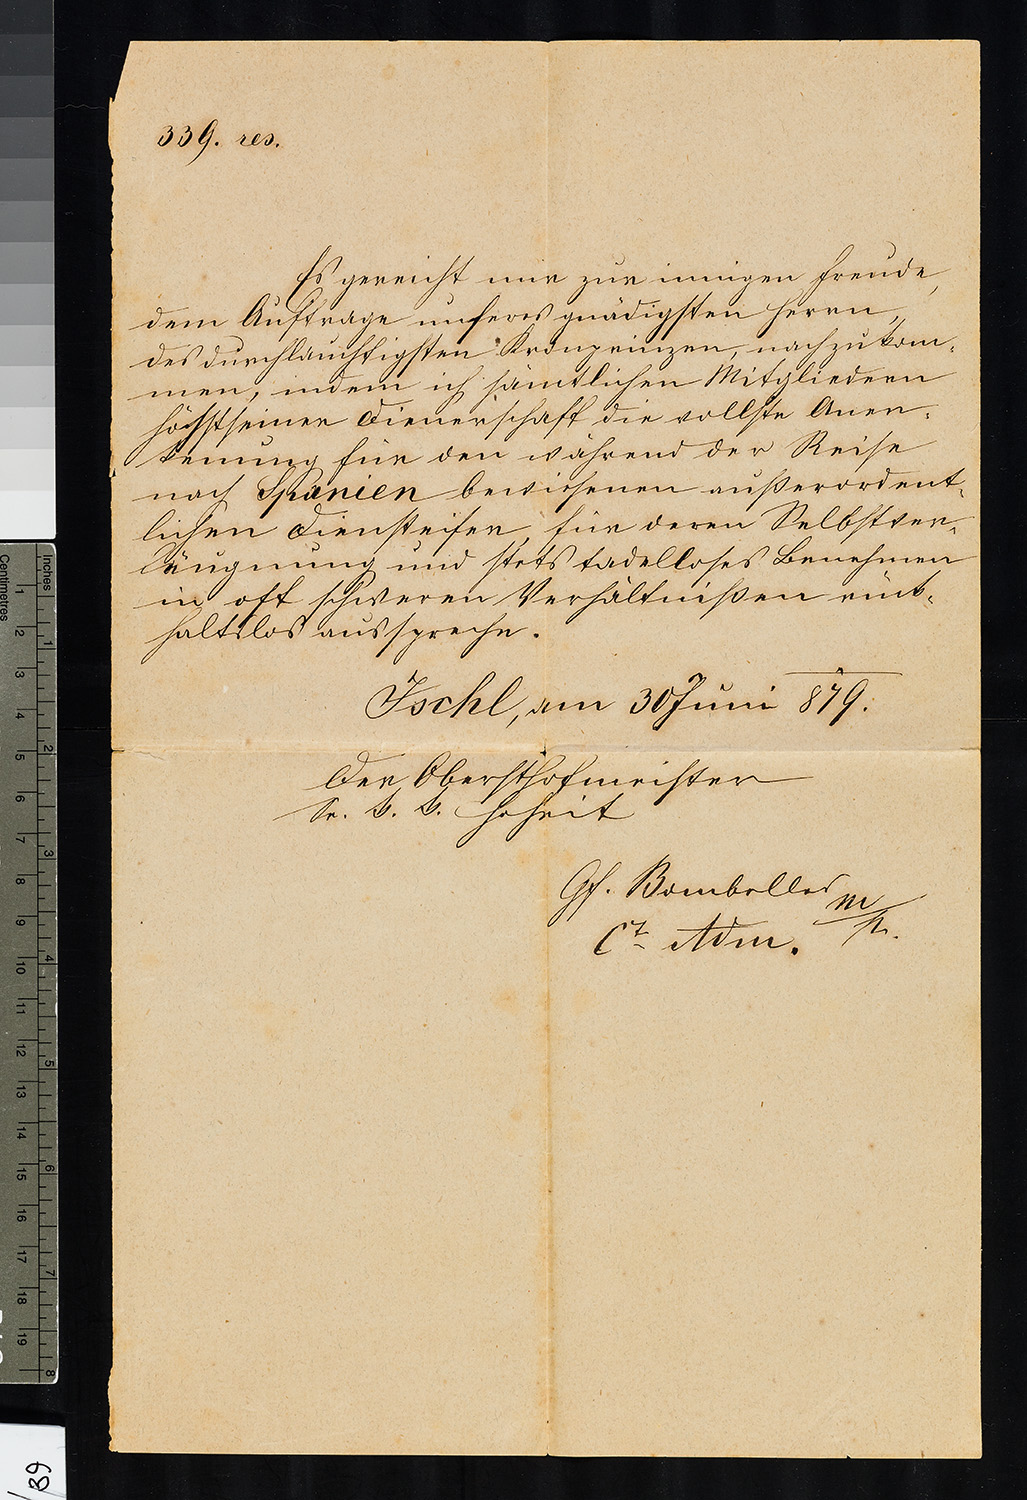 339. res.
Es gereicht mir zur innigen Freude,
dem Auftrage unseres gnädigsten Herrn,
des durchlauchtigsten Kronprinzen, nachzukom-
men, indem ich sämtlichen Mitgliedern
höchstseiner Dienerschaft die vollste Aner-
kennung für den während der Reise
nach Spanien bewiesenen außerordent-
lichen Diensteifer, für deren Selbstver-
läugnung und stets tadelloses Benehmen
in oft schweren Verhältnißen rück-
haltslos ausspreche.
Ischl, am 30 Juni 879.
Der Obersthofmeister
Sr. k. k. Hoheit
Gf. Bombelles m/p.
Ct Adm.
Inches
Centimetres
1 2 3 4 5 6 7 8 9 10 11 12 13 14 15 16 17 18 19
1 2 3 4 5 6 7 8
/89